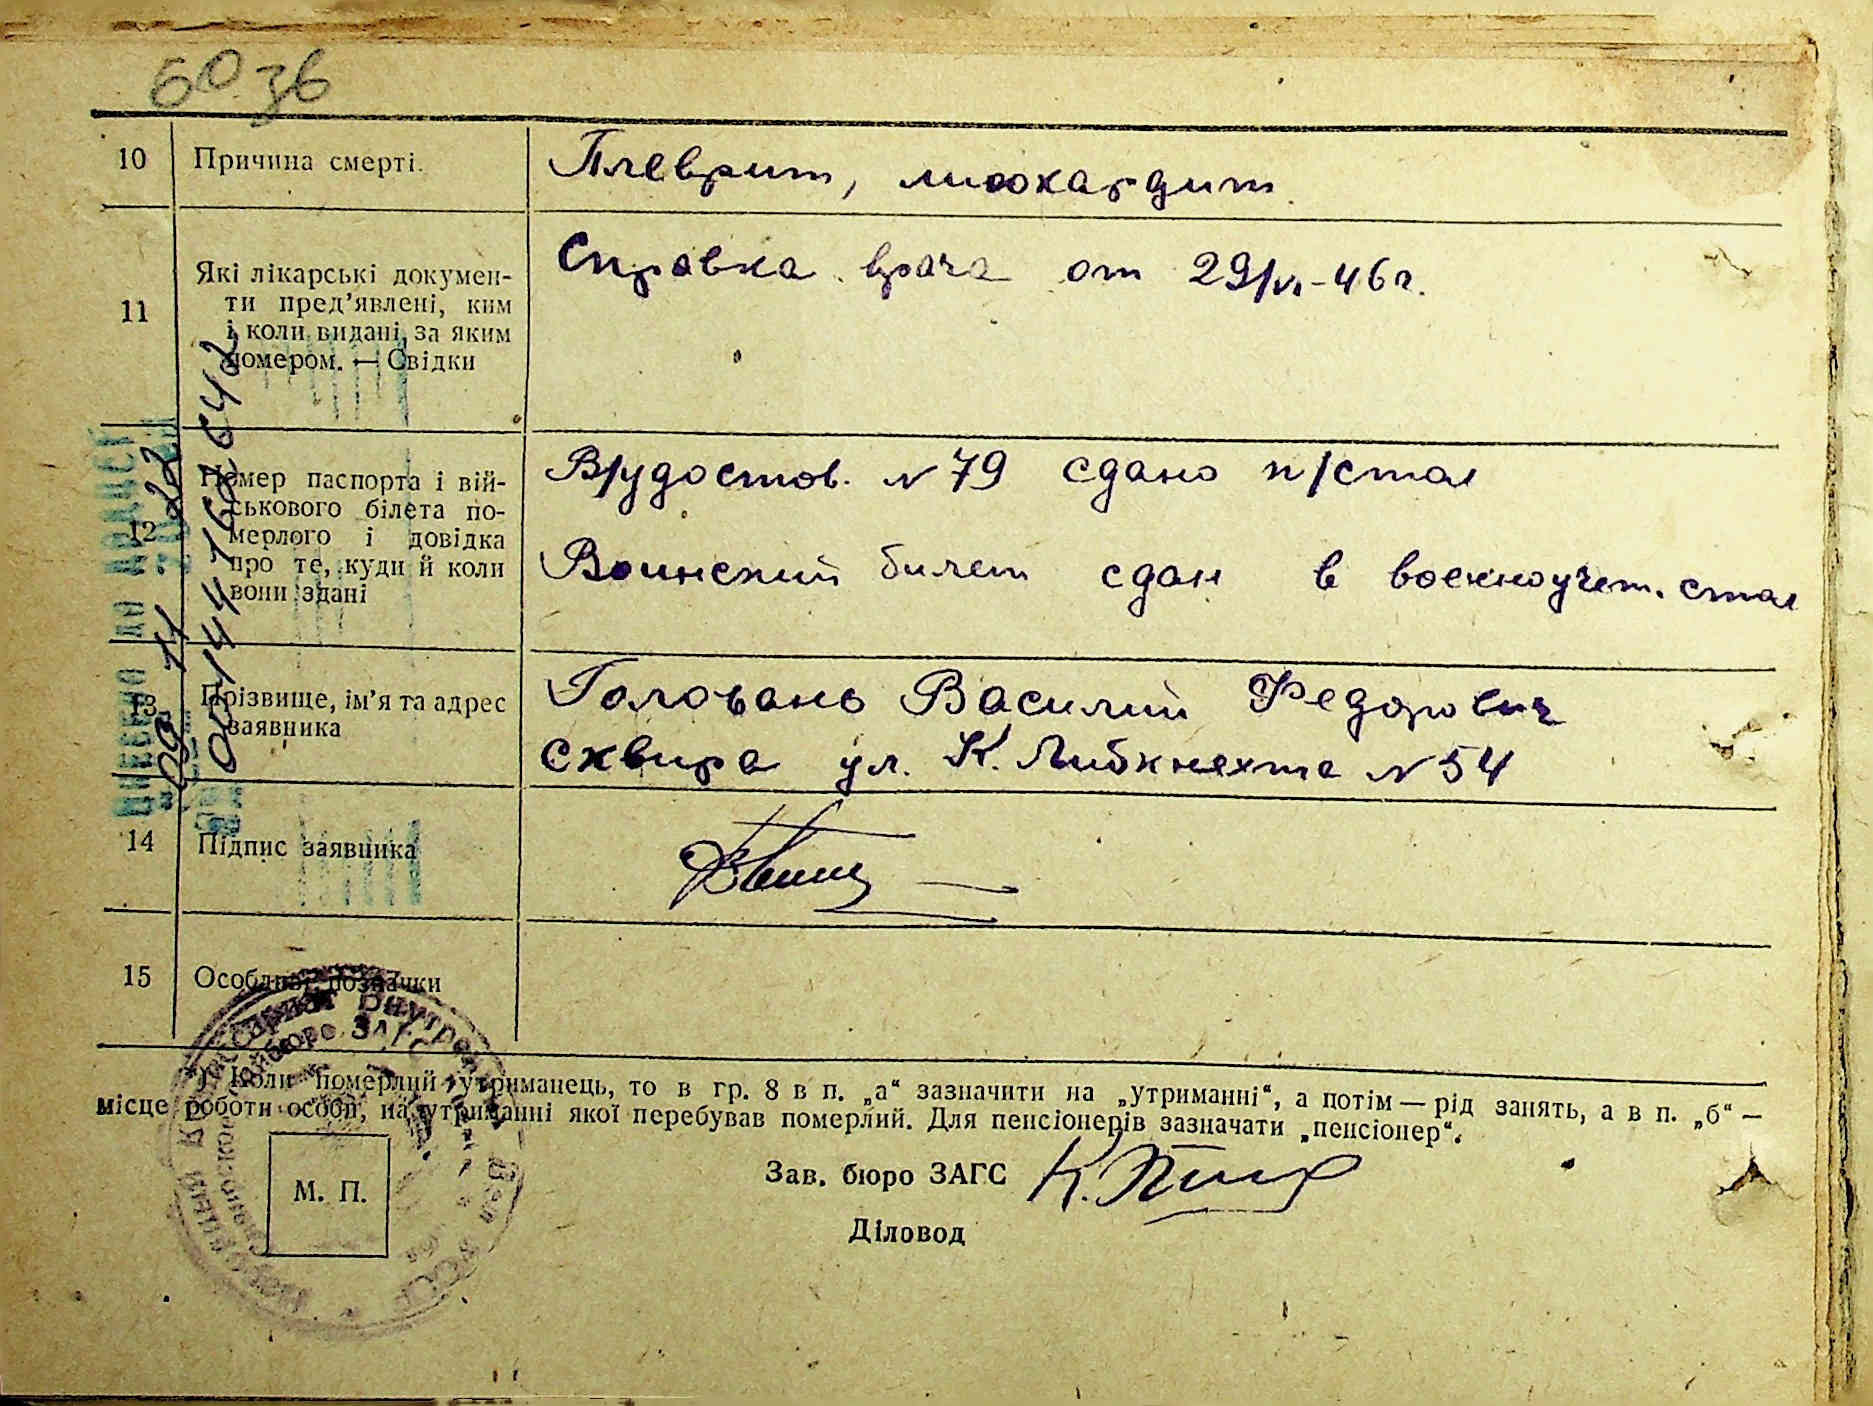 60 зв
10 Причина смерті. Плеврит, миокардит
11 Які лікарські докумен-
ти пред'явлені, ким
і коли видані, за яким
номером. — Свідки
Справка врача от 29/VI-46г.
12 Номер паспорта і вій-
ськового білета по-
мерлого і довідка
про те, куди й коли
вони здані
Вр/удостов. № 79 сдано п/стол
Воинский билет сдан в военноучет. стол
13 Прізвище, ім'я та адрес
заявника
Головань Василий Федорович
Сквира ул. К. Либкнехта № 54
14 Підпис заявника
15 Особливі позначки
*) Коли померлий утриманець, то в гр. 8 в п. „а“ зазначити на „утриманні“, а потім — рід занять, а в п. „б“ —
місце роботи особи, на утриманні якої перебував померлий. Для пенсіонерів зазначати „пенсіонер“.
Зав. бюро ЗАГС
М. П.
Діловод
Внесено до
09 11 22
00144716642